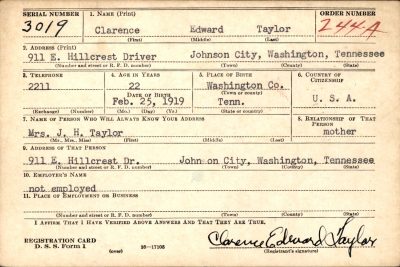 SERIAL NUMBER 1. NAME (Print) ORDER NUMBER
3019 Clarence Edward Taylor 244A
(First) (Middle) (Last)
2. ADDRESS (Print)
911 E. Hillcrest Driver Johnson City, Washington, Tennessee
(Number and street or R. F. D. number) (Town) (County) (State)
3. TELEPHONE 4. AGE IN YEARS 5. PLACE OF BIRTH 6. COUNTRY OF CITIZENSHIP
2211 22 Washington Co.
DATE OF BIRTH (Town or county)
Feb. 25, 1919 Tenn. U. S. A.
(Exchange) (Number) (Mo.) (Day) (Yr.) (State or country)
7. NAME OF PERSON WHO WILL ALWAYS KNOW YOUR ADDRESS 8. RELATIONSHIP OF THAT PERSON
Mrs. J. H. Taylor mother
(Mr., Mrs., Miss) (First) (Middle) (Last)
9. ADDRESS OF THAT PERSON
911 E. Hillcrest Dr. John on City, Washington, Tennessee
(Number and street or R. F. D. number) (Town) (County) (State)
10. EMPLOYER'S NAME
not employed
11. PLACE OF EMPLOYMENT OR BUSINESS
(Number and street or R. F. D. number) (Town) (County) (State)
I AFFIRM THAT I HAVE VERIFIED ABOVE ANSWERS AND THAT THEY ARE TRUE.
REGISTRATION CARD
D. S. S. Form 1 (over) 16—17105 Clarence Edward Taylor
(Registrant's signature)